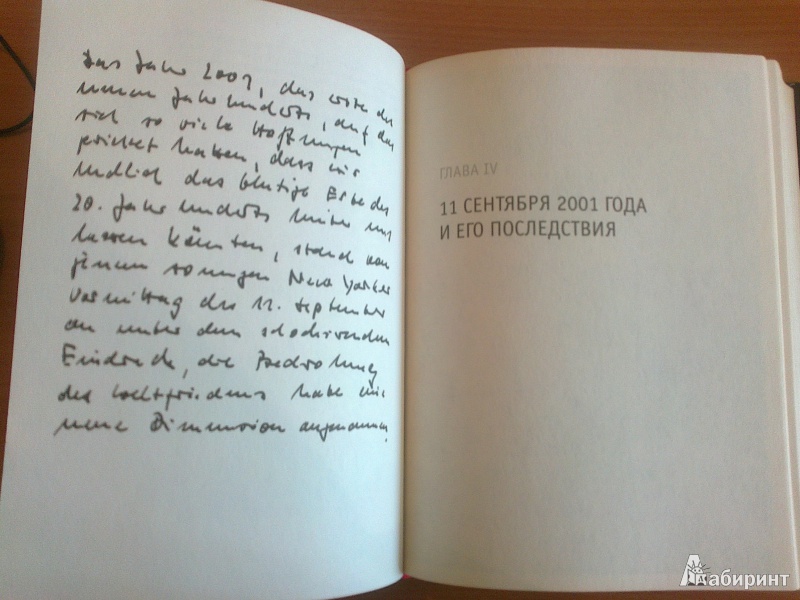 Das Jahr 2001, das erste des
neuen Jahrhunderts, auf das
sich so viele Hoffnungen
gerichtet hatten, dass wir
endlich das blutige Erbe des
20. Jahrhunderts hinter uns
lassen könnten, stand von
jenem sonnigen New Yorker
Vormittag des 11. September
an unter dem schockierenden
Eindruck, die Bedrohung
des Weltfriedens habe eine
neue Dimension angenommen.
ГЛАВА IV
11 СЕНТЯБРЯ 2001 ГОДА
И ЕГО ПОСЛЕДСТВИЯ
Лабиринт